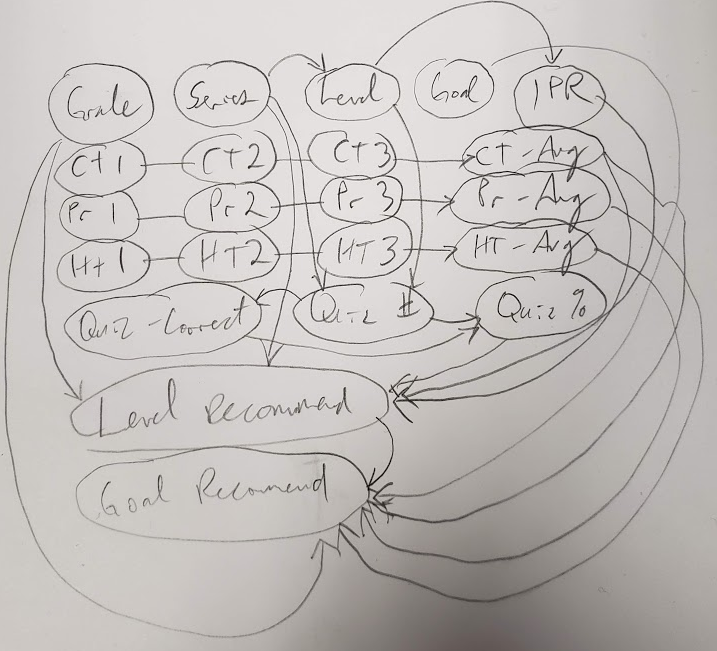 Grade Series Level Goal IPR
Ct1 Ct2 Ct3 CT-Avg
Pr1 Pr2 Pr3 Pr-Avg
Ht1 HT2 HT3 HT-Avg
Quiz-Correct Quiz # Quiz %
Level Recommend
Goal Recomend